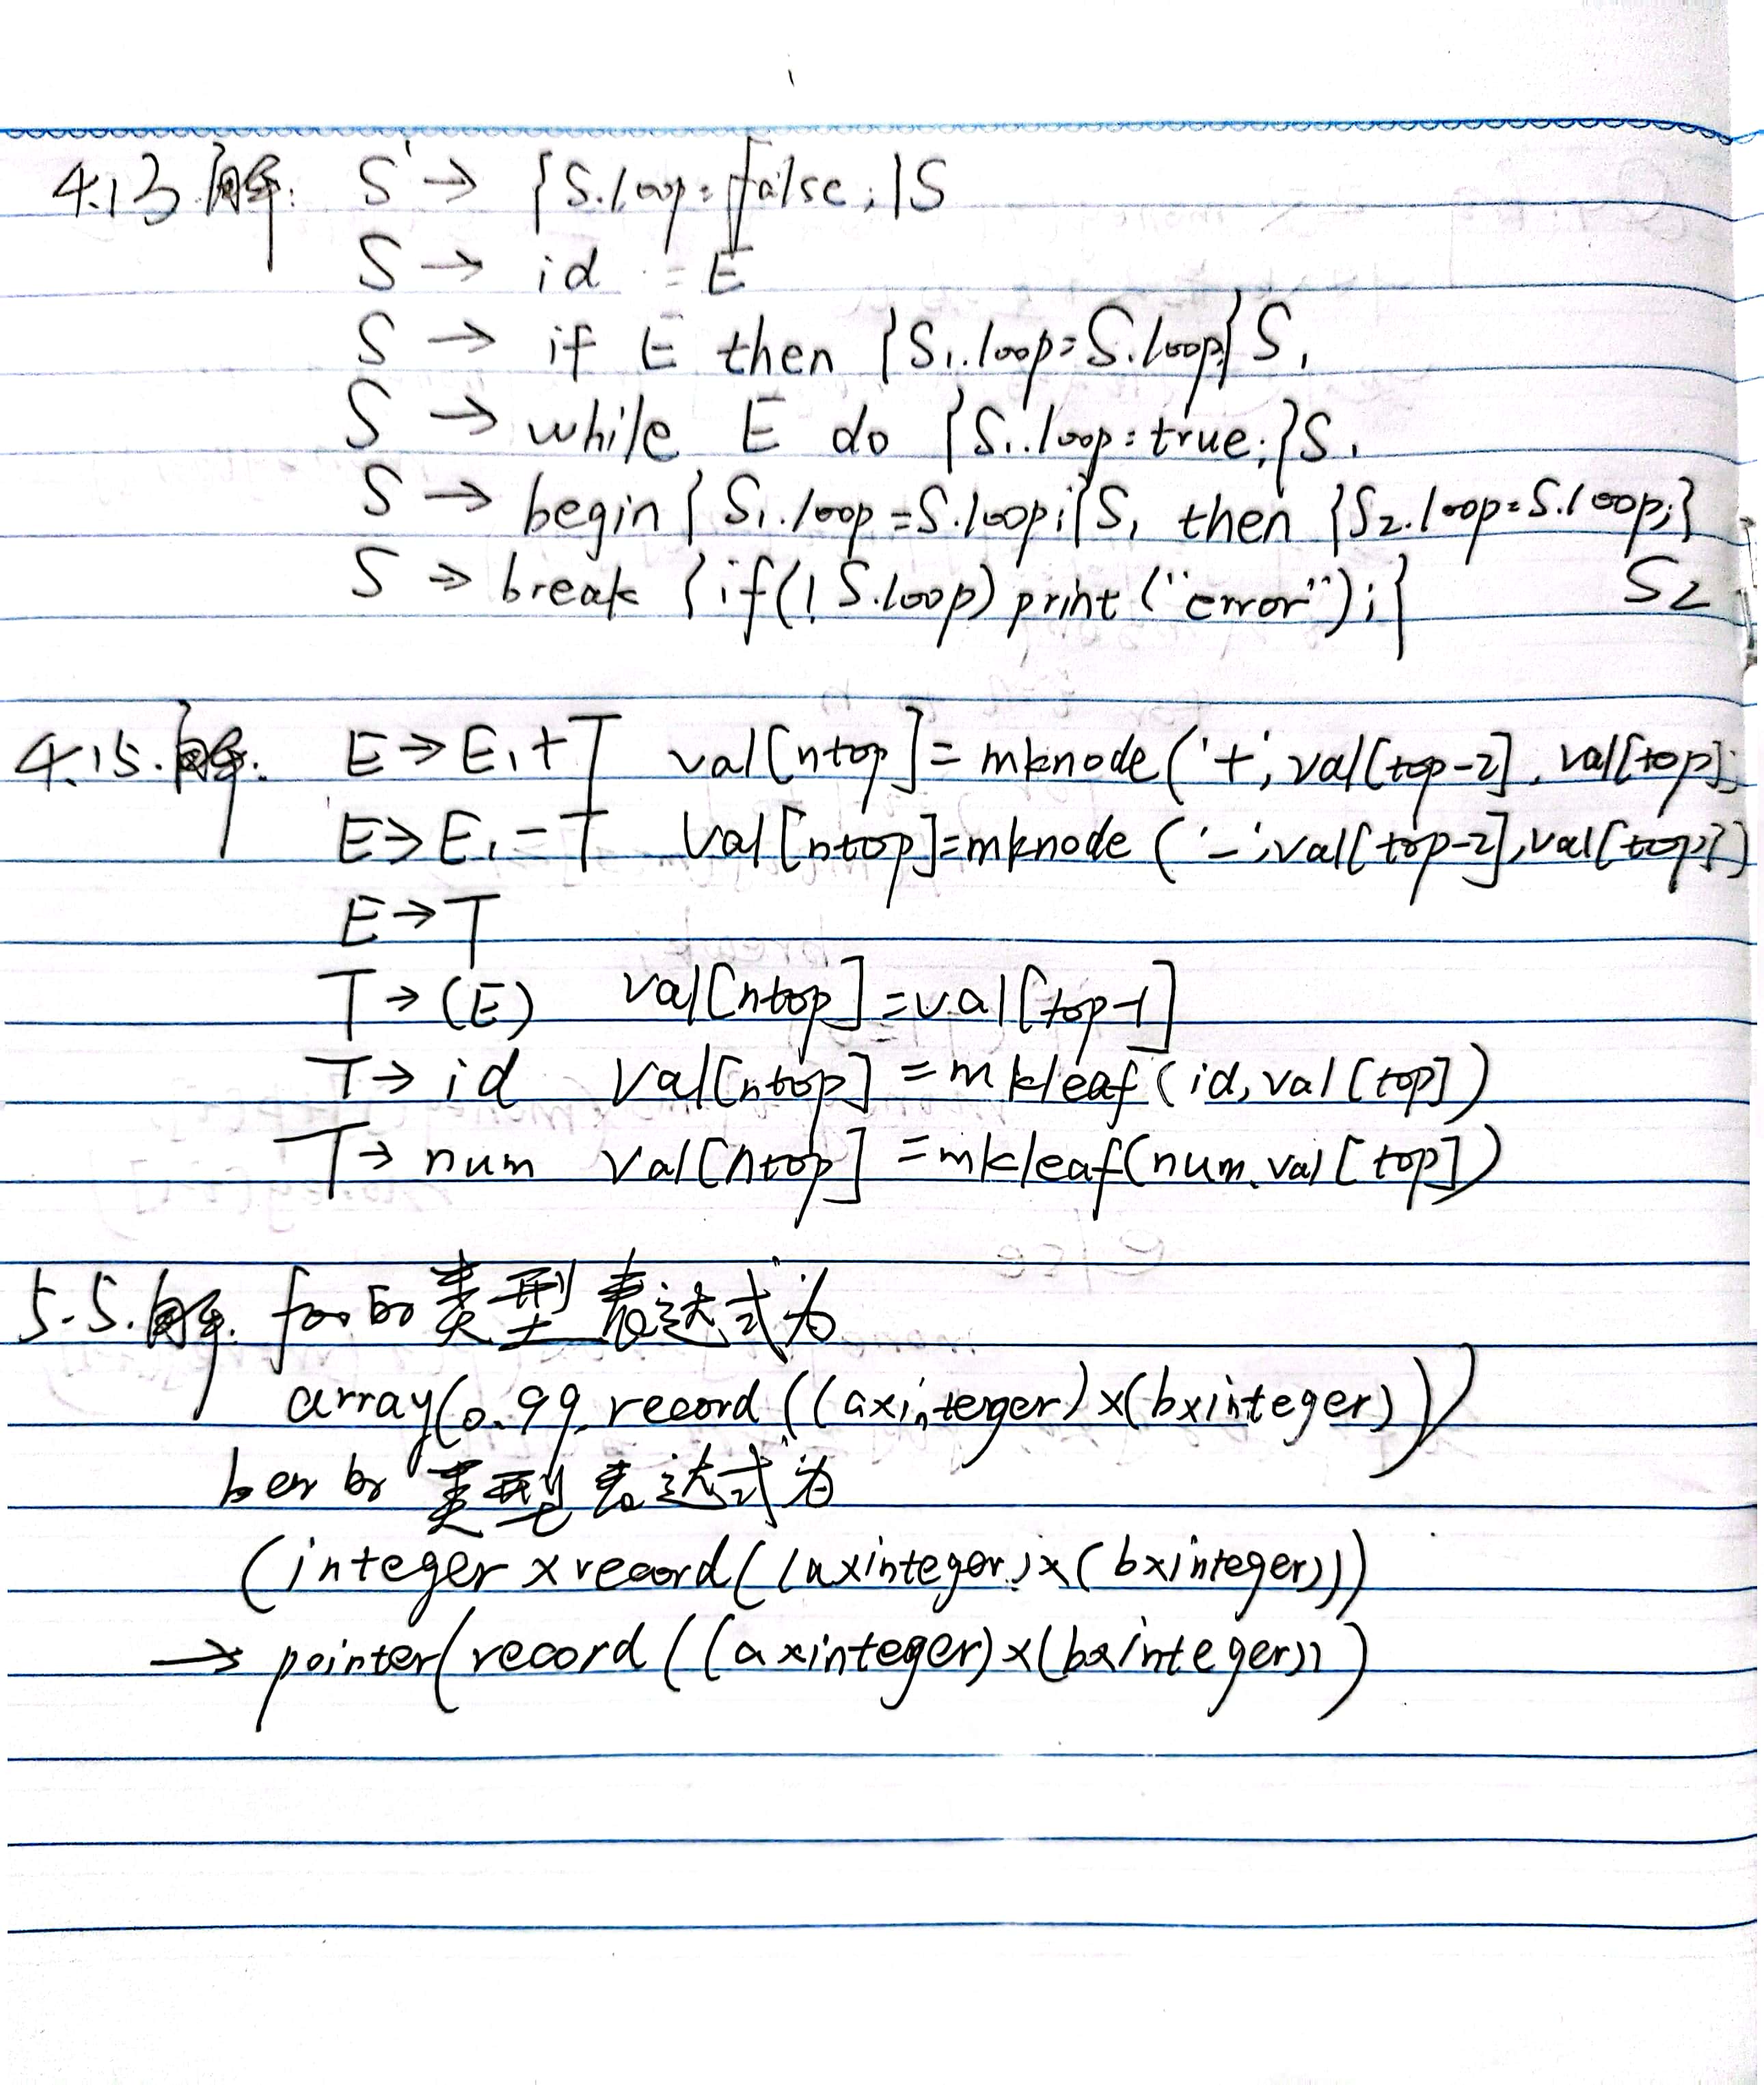 4.13.解: S' → {S.loop=false;}S
S → id = E
S → if E then {S₁.loop=S.loop;}S₁
S → while E do {S₁.loop=true;}S₁
S → begin {S₁.loop=S.loop;}S₁ then {S₂.loop=S.loop;}
S → break {if(!S.loop) print("error");} S₂
4.15.解: E → E₁+T val[ntop]=mknode('+',val[top-2],val[top];
E → E₁-T val[ntop]=mknode('-',val[top-2],val[top])
E → T
T → (E) val[ntop]=val[top-1]
T → id val[ntop]=mkleaf(id,val[top])
T → num val[ntop]=mkleaf(num.val[top])
5.5.解. foo的类型表达式为
array(0..99.record((a×integer)×(b×integer)))
bar的类型表达式为
(integer×record((a×integer)×(b×integer)))
→ pointer(record((a×integer)×(b×integer)))